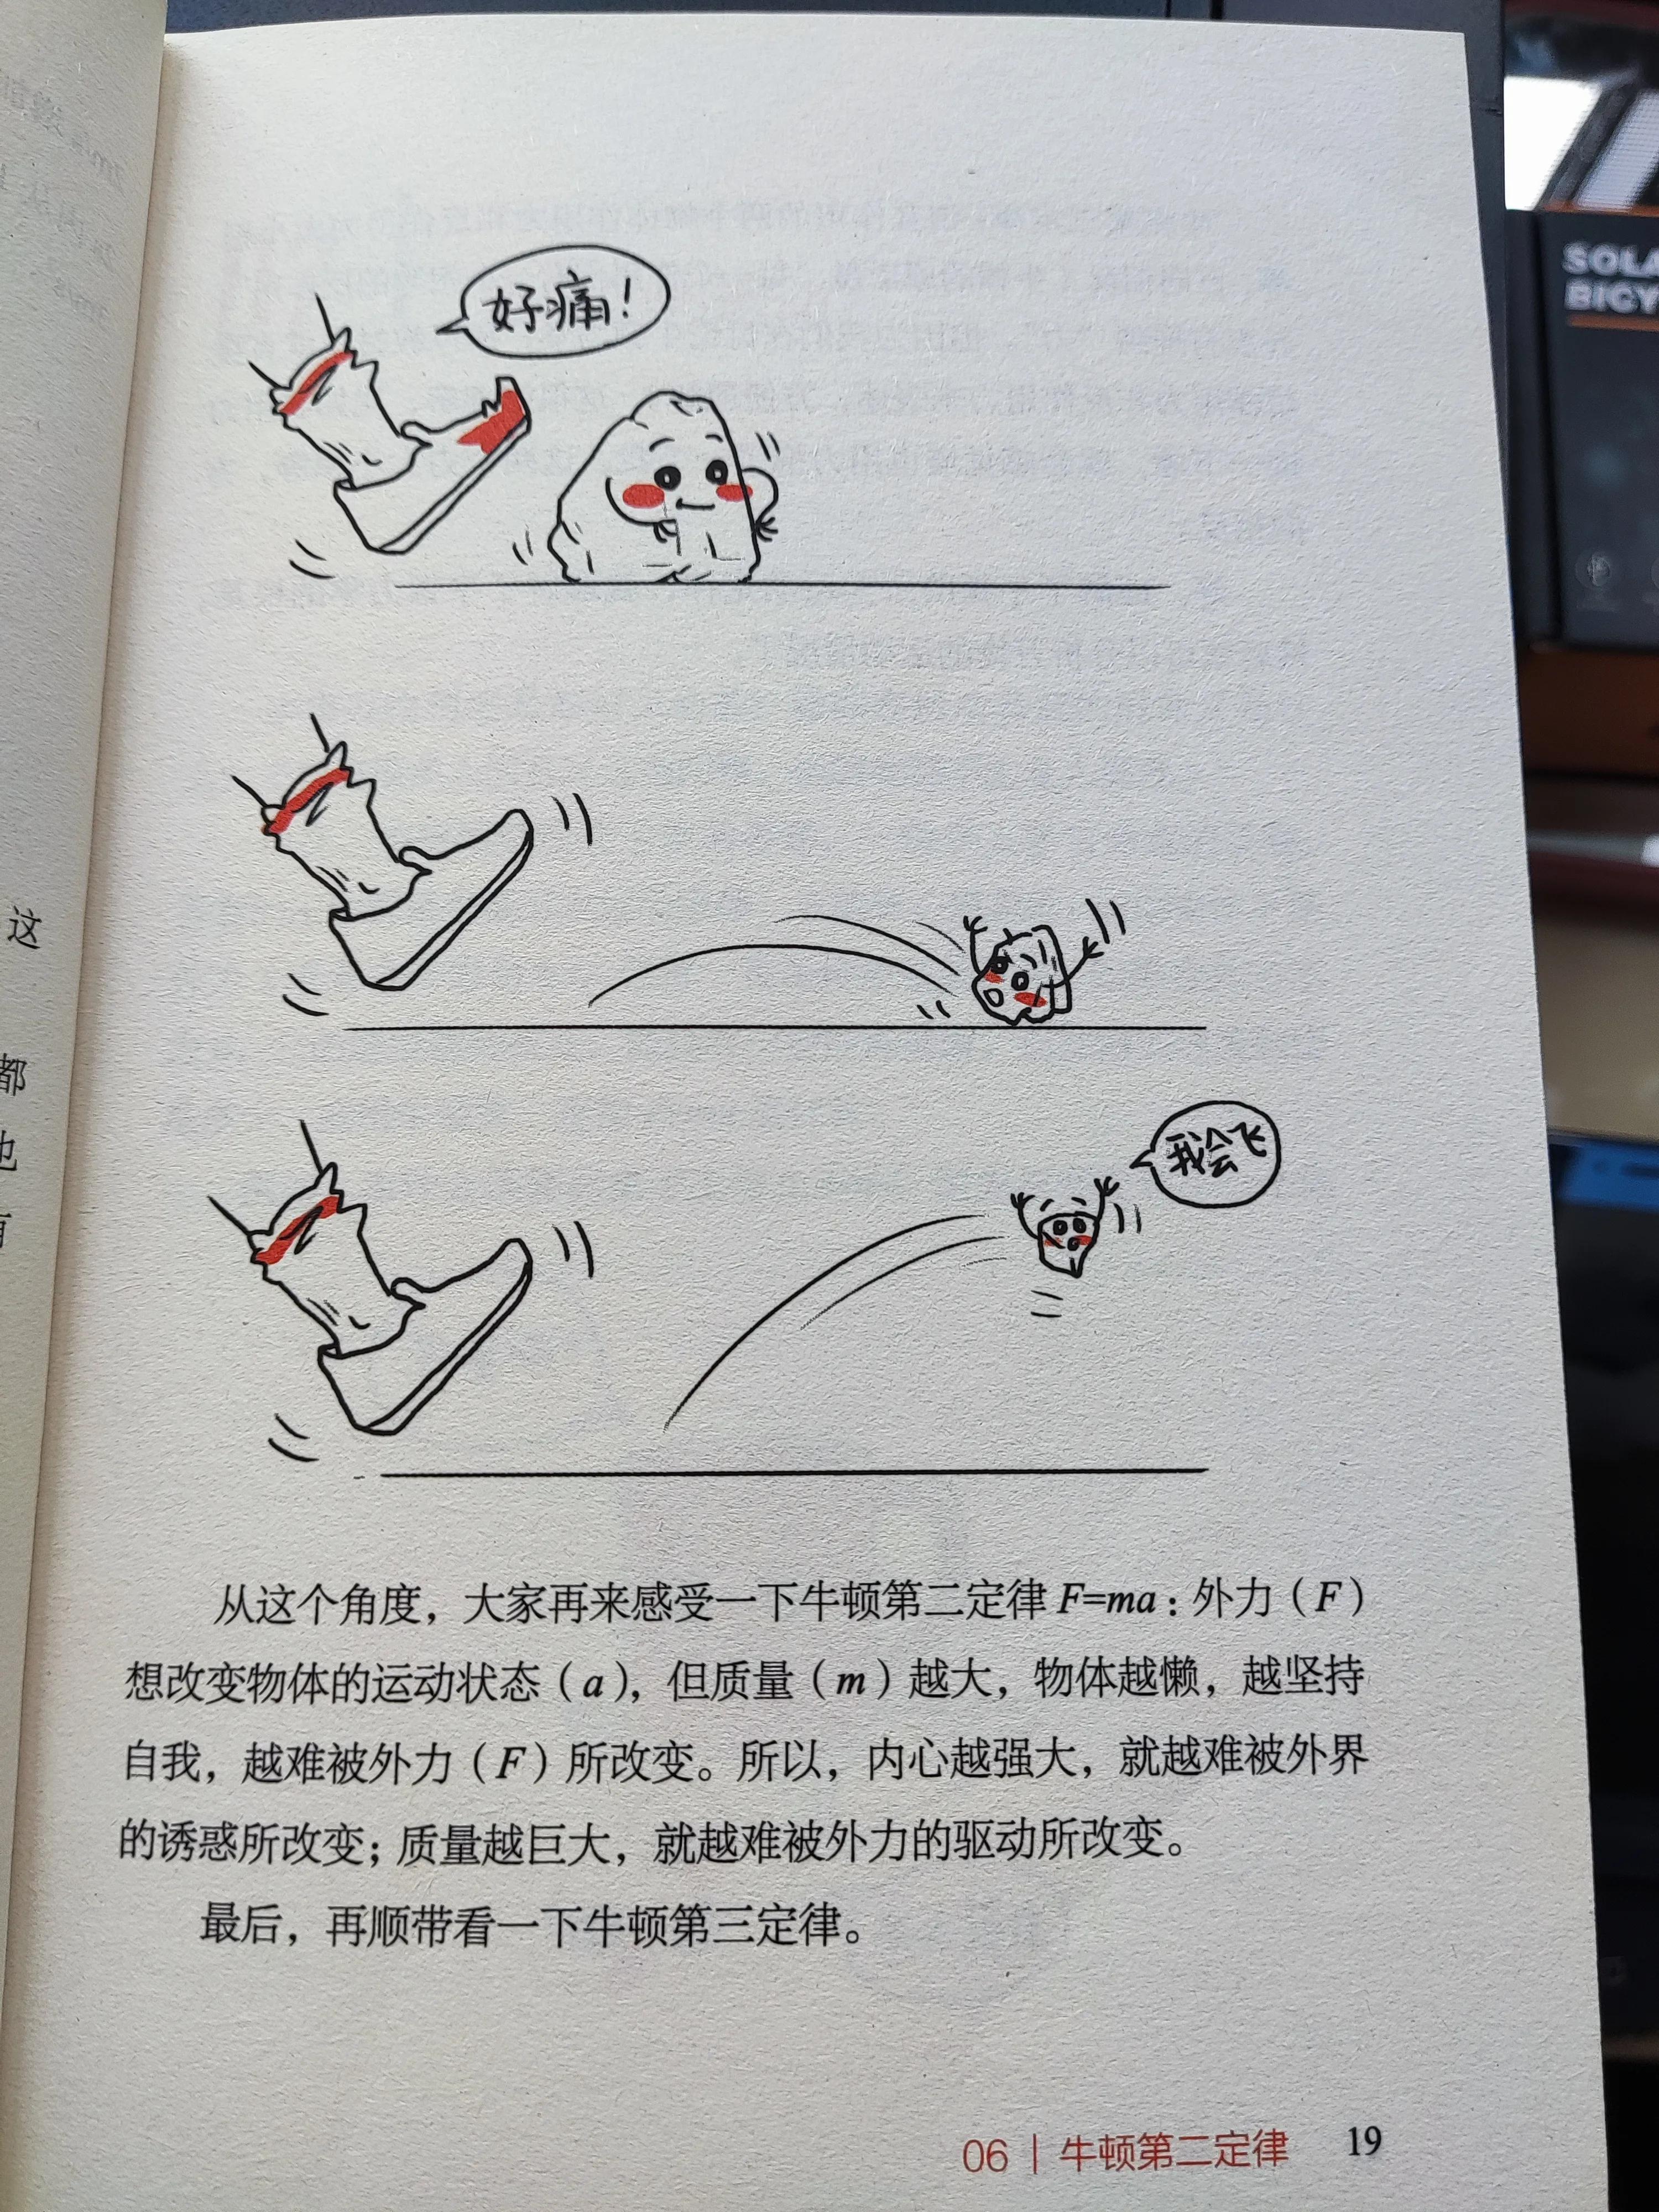 好痛！
我会飞
从这个角度，大家再来感受一下牛顿第二定律 F=ma：外力（F）
想改变物体的运动状态（a），但质量（m）越大，物体越懒，越坚持
自我，越难被外力（F）所改变。所以，内心越强大，就越难被外界
的诱惑所改变；质量越巨大，就越难被外力的驱动所改变。
最后，再顺带看一下牛顿第三定律。
06 | 牛顿第二定律 19
这
都
也
SOLA
BICY